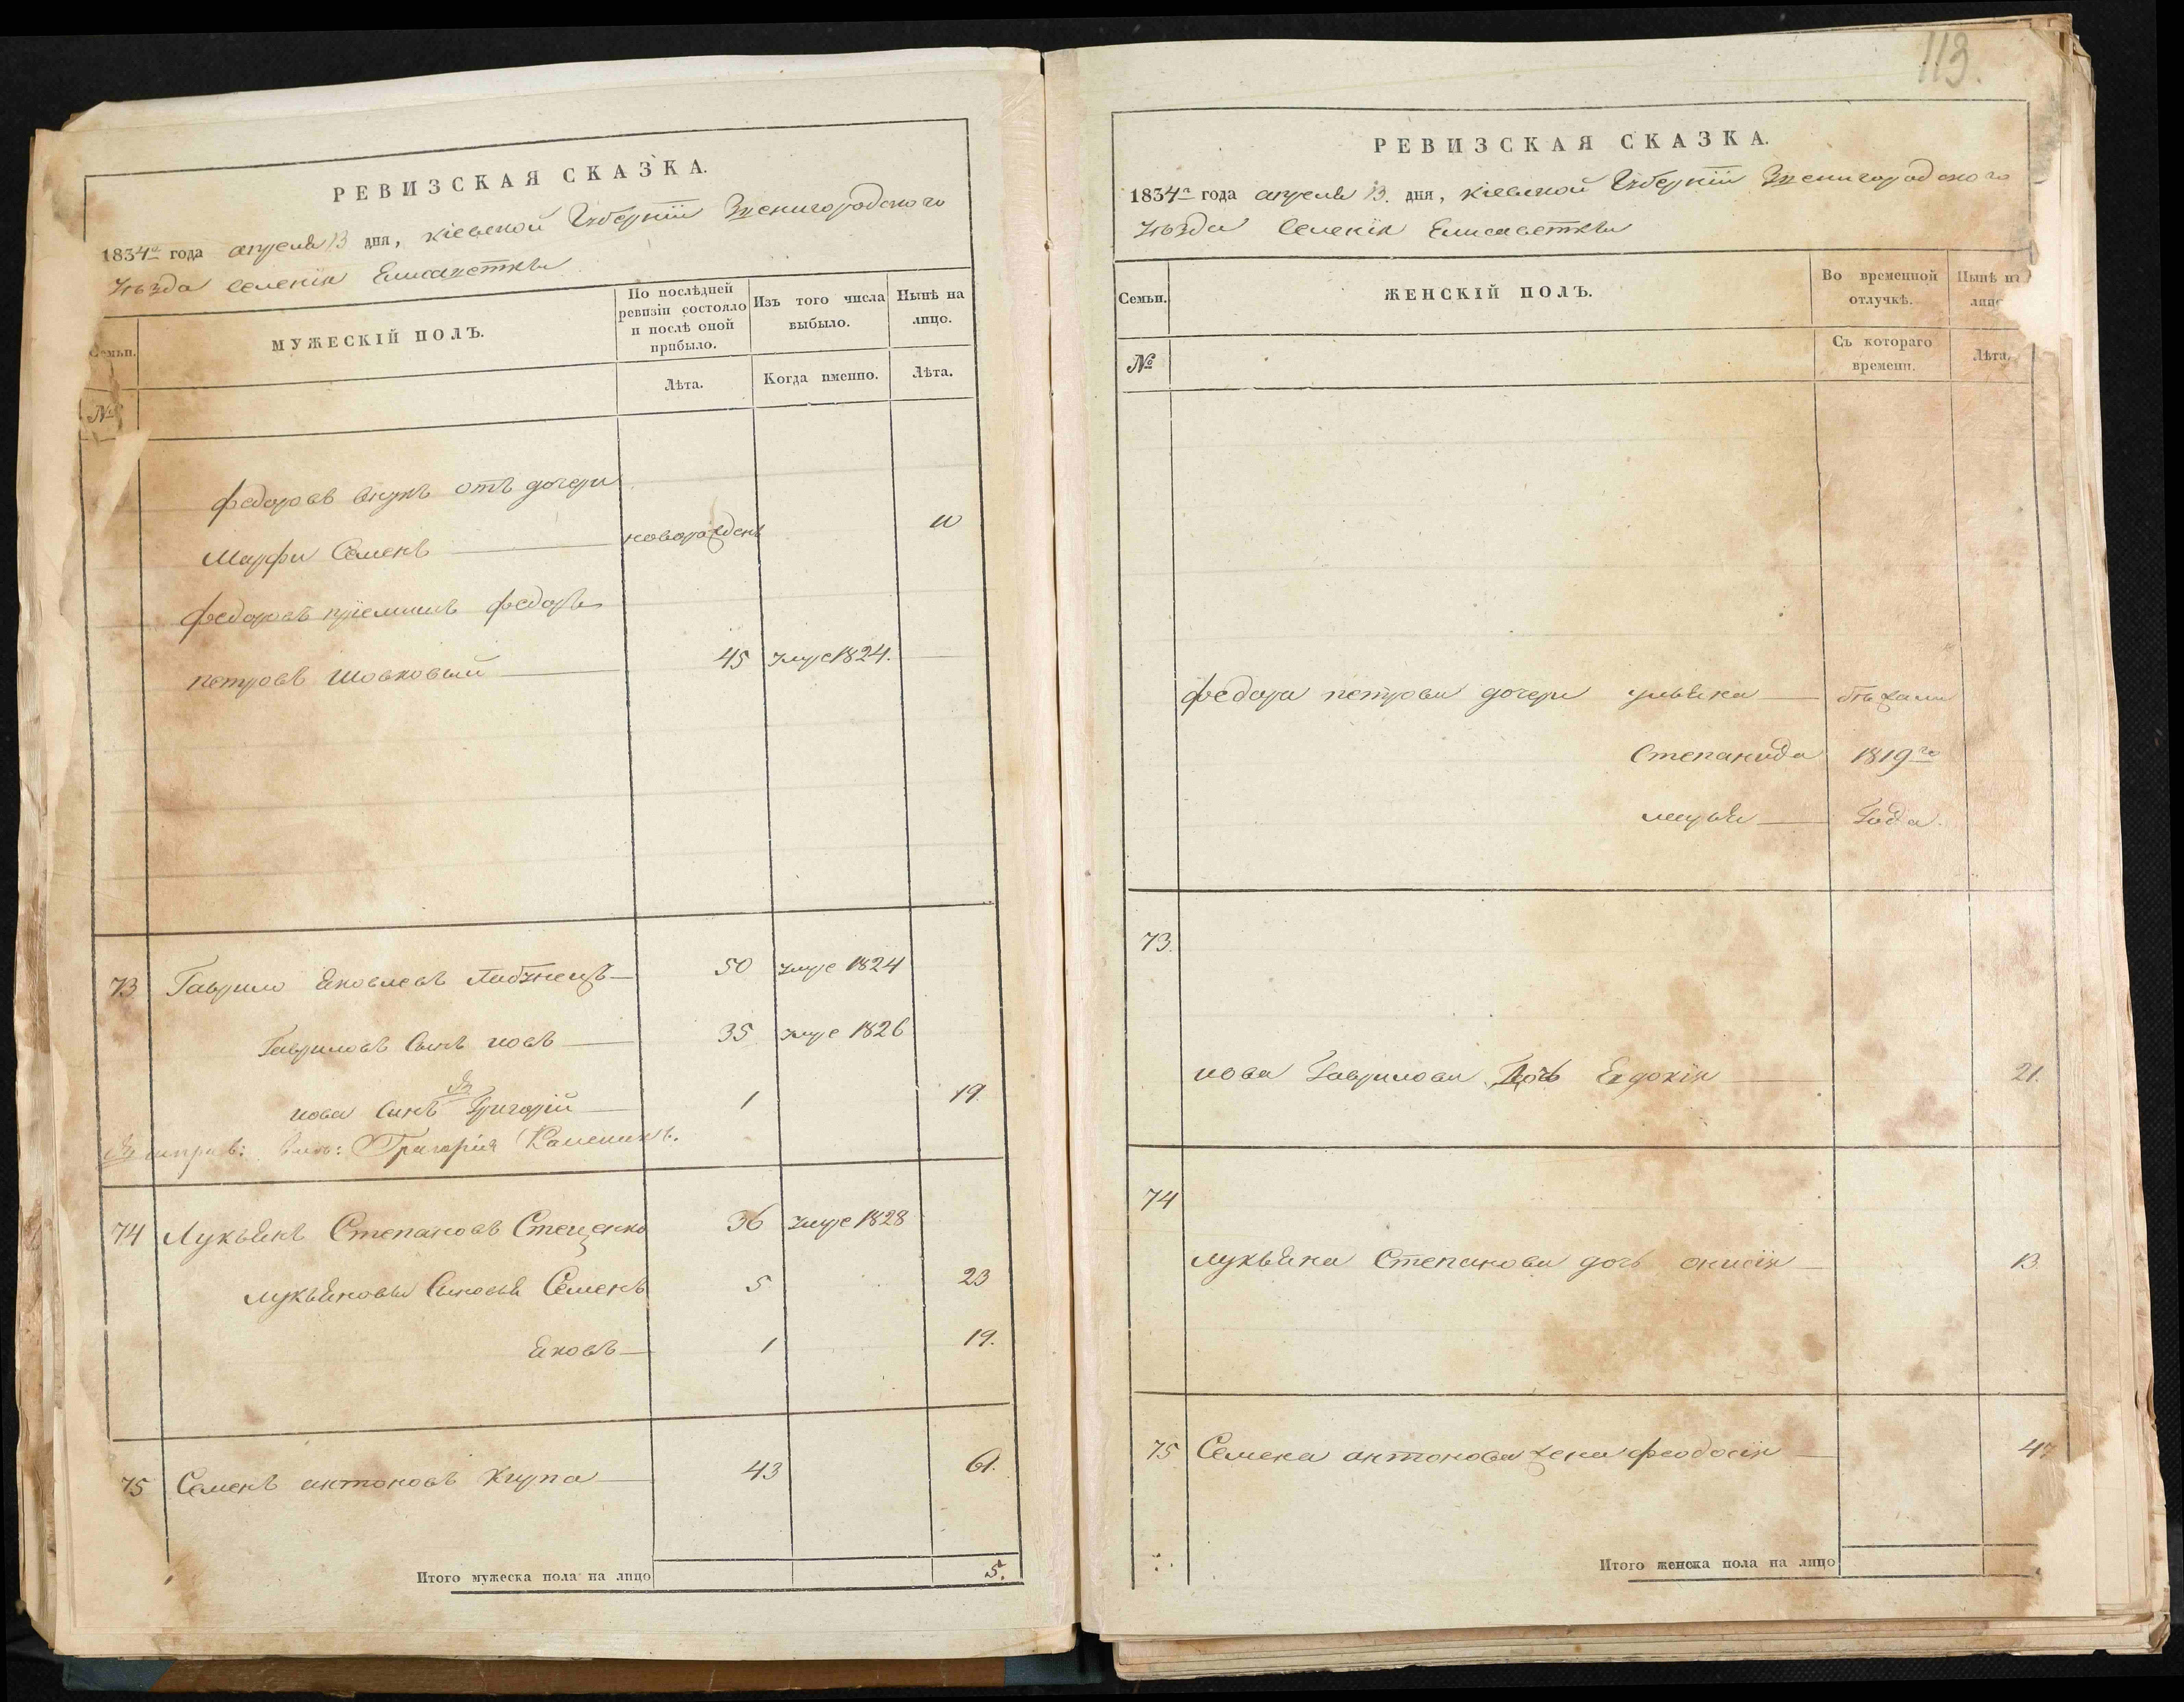 РЕВИЗСКАЯ СКАЗКА.
1834го года апреля 13 дня, кіевской Губерніи Звенигородского
Уѣзда Селенія Елисаветки
Семьи.
МУЖЕСКІЙ ПОЛЪ.
По послѣдней ревизіи состояло и послѣ оной прибыло.
Изъ того числа выбыло.
Нынѣ на лицо.
№
Лѣта.
Когда именно.
Лѣта.
федоровъ внукъ отъ дочери
Марфы Семенъ новорожденъ 10
федоровъ пріемышъ федоръ
петровъ Шовковый 45 умре 1824.
73 Гаврило Яковлевъ 50 умре 1824
Гавриловъ Сынъ иовъ 35 умре 1826
иова Сынъ Григорій 1 19
Григорія Каменикъ.
74 Лукьянъ Степановъ Стеценко 36 умре 1828
лукьяновы Сыновья Семенъ 5 23
Яковъ 1 19.
75 Семенъ антоновъ Кирпа 43 61.
Итого мужеска пола на лицо 5.
113.
РЕВИЗСКАЯ СКАЗКА.
1834го года апреля 13. дня, кіевской Губерніи Звенигородского
Уѣзда Селенія Елисаветки
Семьи.
ЖЕНСКІЙ ПОЛЪ.
Во временной отлучкѣ.
Нынѣ на лицо
№
Съ котораго времени.
Лѣта.
федора петрова дочери ульяна бѣжали
Степанида 1819го
марья Года.
73.
иова Гаврилова Дочь Евдокія 21.
74
лукьяна Степанова дочь анисія 13
75 Семена антонова жена феодосія 47
Итого женска пола на лицо